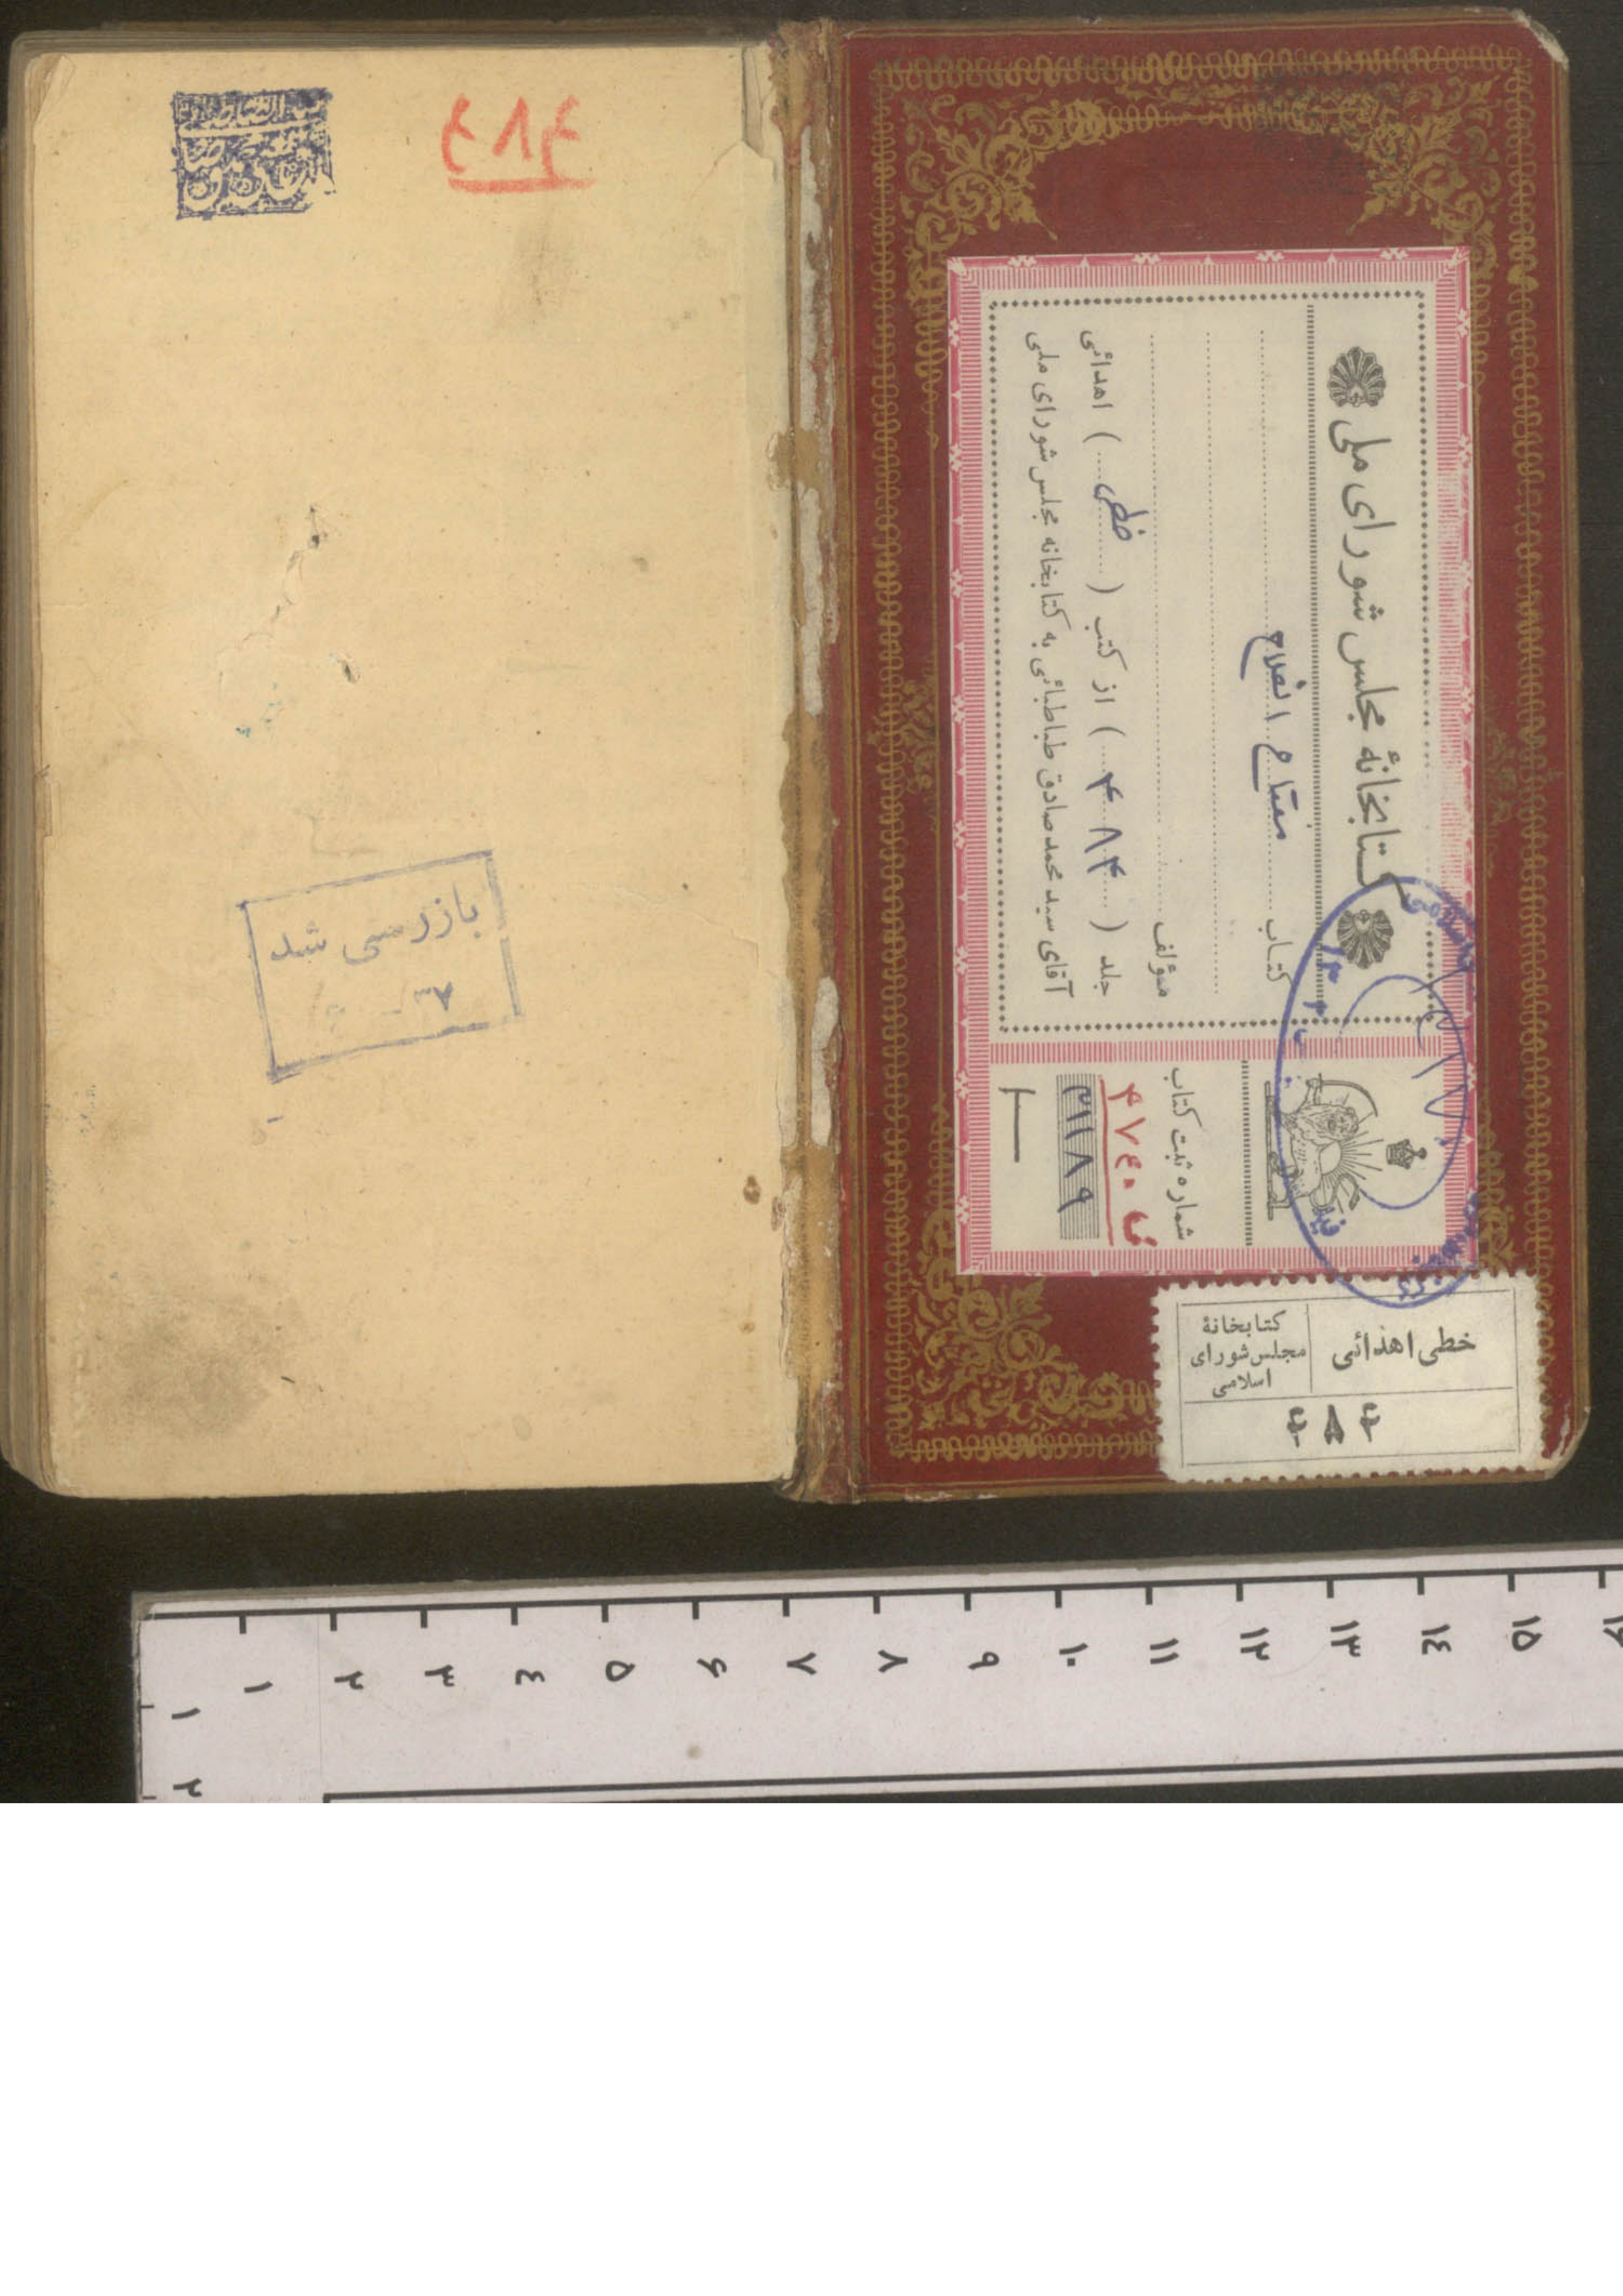 ۴۸۴
بازرسی شد
۳۷
کتابخانهٔ مجلس شورای ملی
کتاب مفتاح الفلاح
مؤلف
جلد (۴۸۴) از کتب (خطی) اهدائی
آقای سید محمد صادق طباطبائی به کتابخانه مجلس شورای ملی
شماره ثبت کتاب
۴۷۴۰۰
۳۱۱۸۹
خطی اهدائی
کتابخانهٔ
مجلس شورای
اسلامی
۴۸۴
۱ ۲ ۳ ۴ ۵ ۶ ۷ ۸ ۹ ۱۰ ۱۱ ۱۲ ۱۳ ۱۴ ۱۵ ۱۶
۱
۲